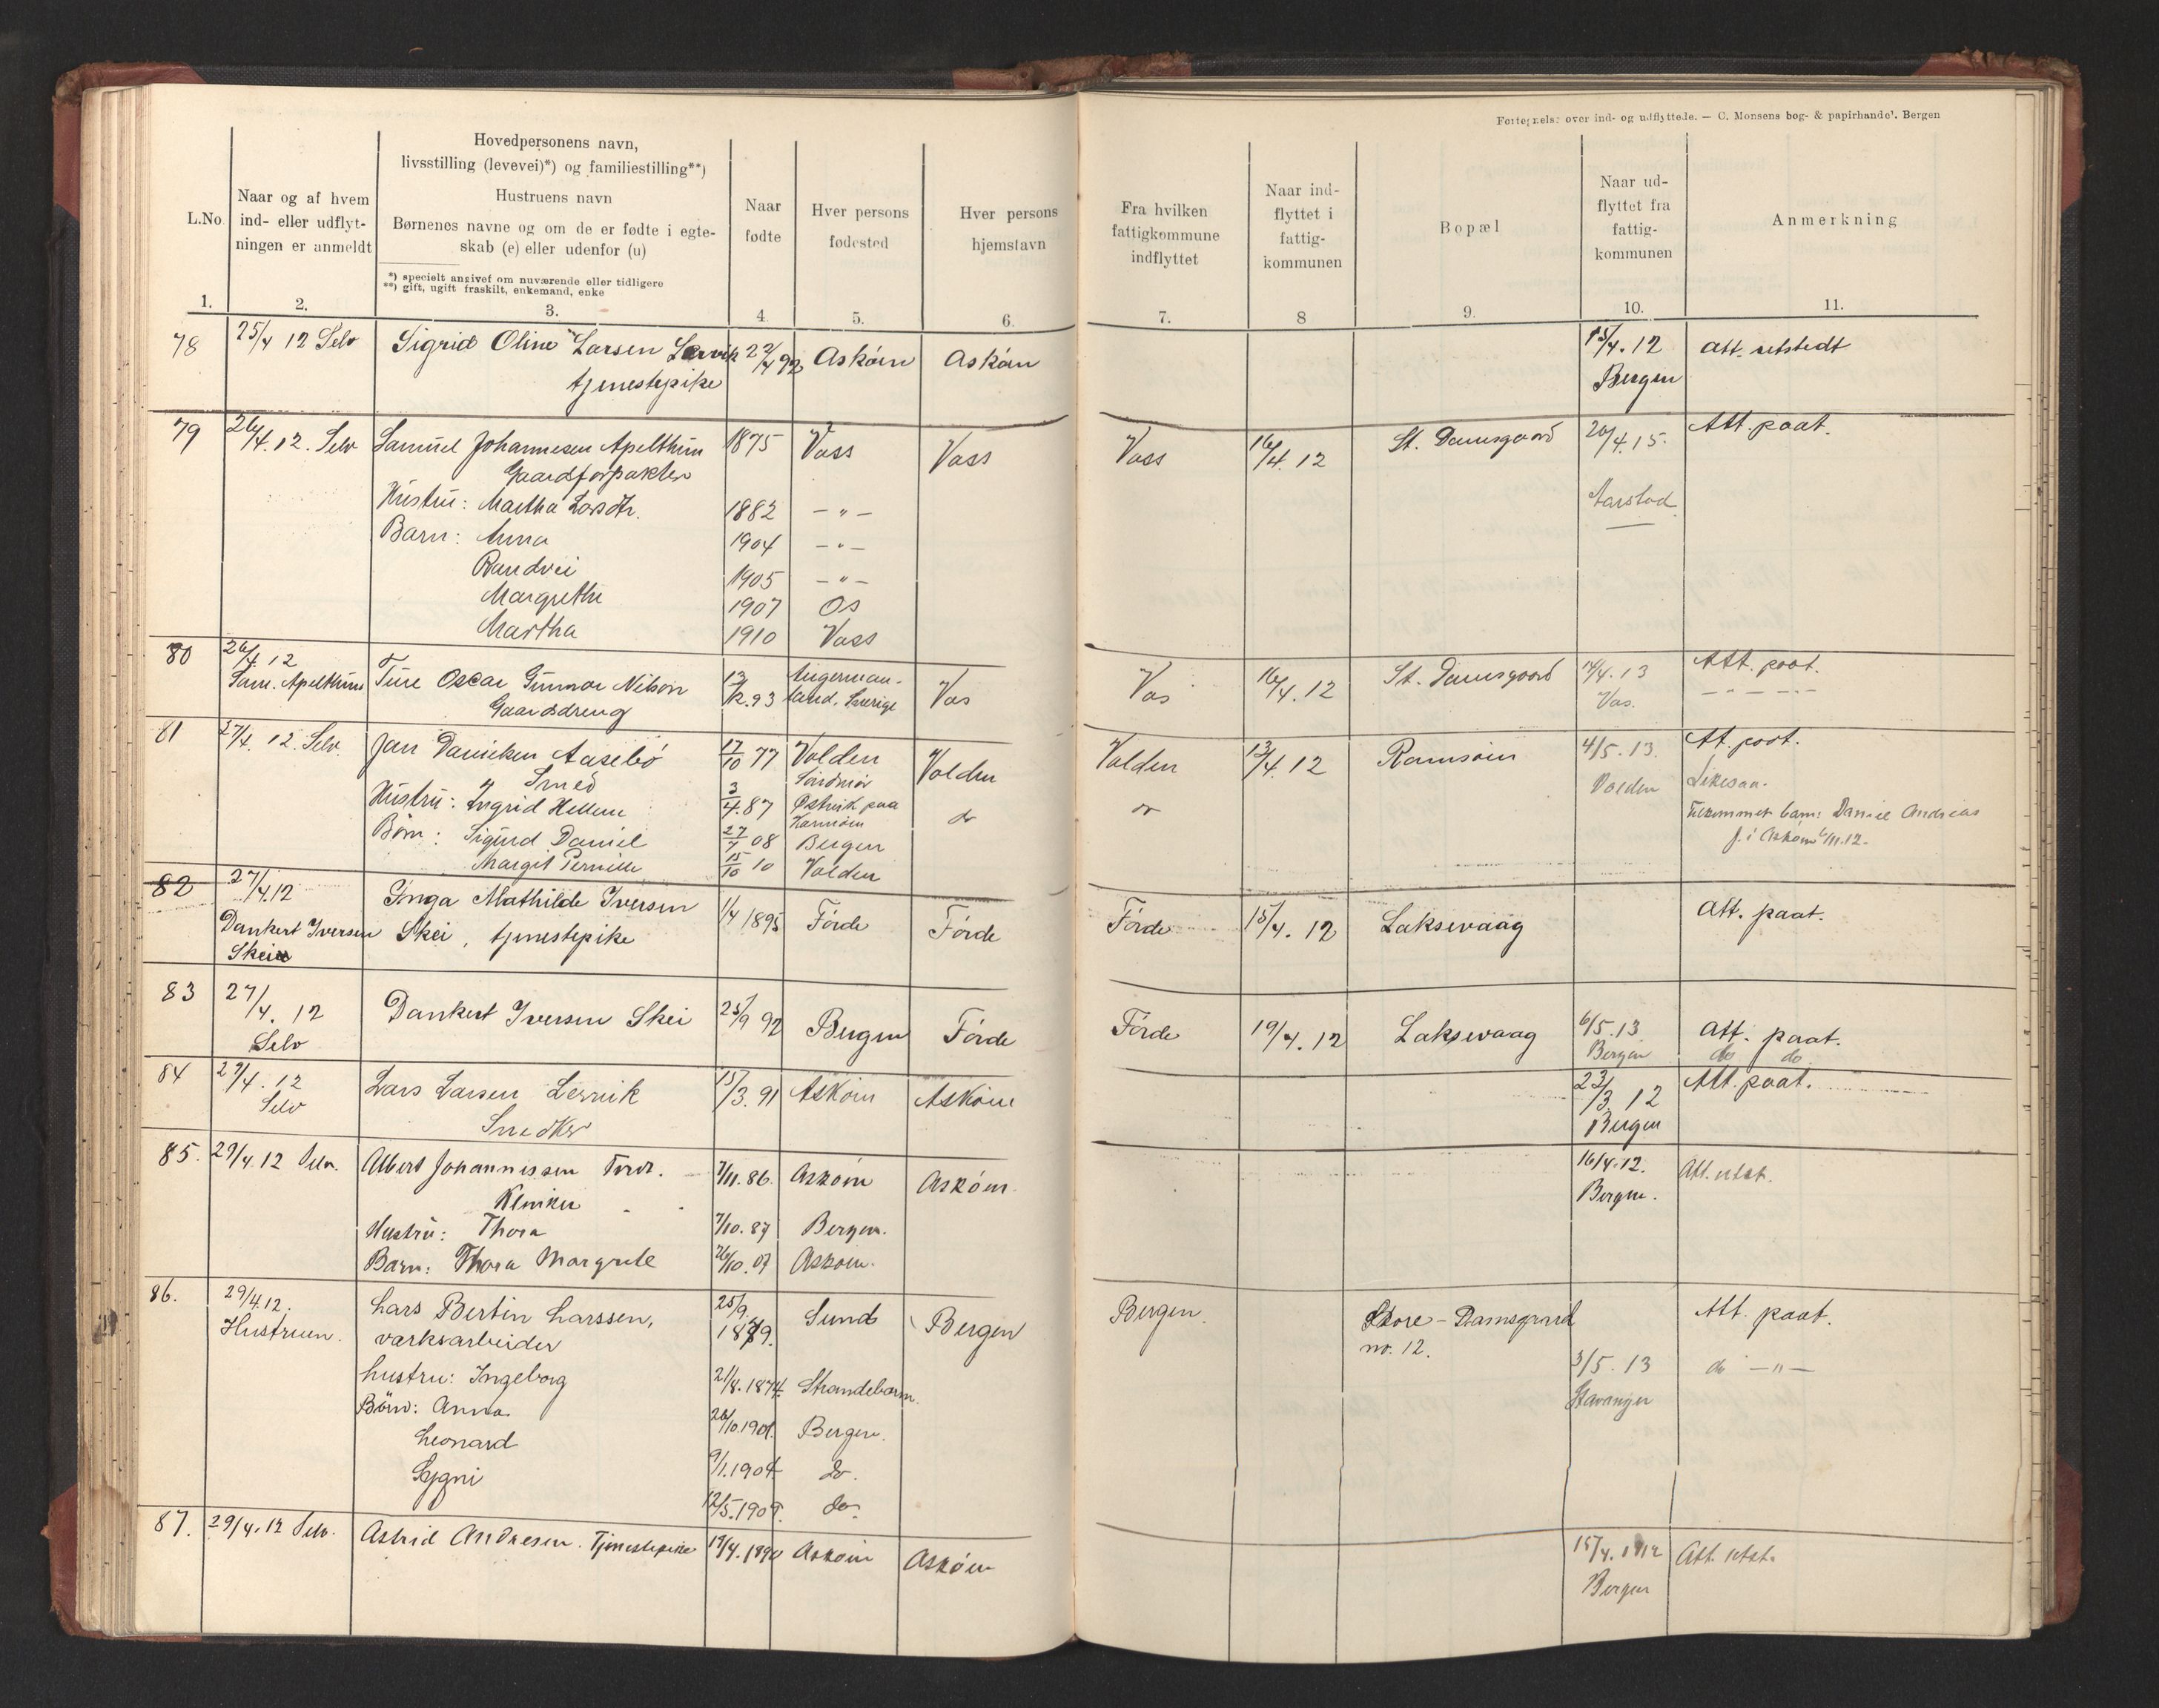 Fortegnelse over ind- og udflyttede. — C. Monsens bog- & papirhandel. Bergen
L.No
1.
Naar og af hvem
ind- eller udflyt-
ningen er anmeldt
2.
Hovedpersonens navn,
livsstilling (levevei)*) og familiestilling**)
Hustruens navn
Børnenes navne og om de er fødte i egte-
skab (e) eller udenfor (u)
*) specielt angivet om nuværende eller tidligere
**) gift, ugift fraskilt, enkemand, enke
3.
Naar
fødte
4.
Hver persons
fødested
5.
Hver persons
hjemstavn
6.
Fra hvilken
fattigkommune
indflyttet
7.
Naar ind-
flyttet i
fattig-
kommunen
8
Bopæl
9.
Naar ud-
flyttet fra
fattig-
kommunen
10.
Anmerkning
11.
78 25/4 12 Selv Sigrid Oline Larsen Lervik 22/4 92 Askøin Askøin 15/4.12 Att. utstedt
tjenestepike Bergen
79 26/4.12. Selv Samuel Johannesen Apelthun 1875 Voss Voss Voss 16/4.12 St. Damsgaard 20/4.15. Att. paat.
Gaardforpakter
Hustru: Martha Larsdtr. 1882 — " — Aarstad
Barn: Anna 1904 — " —
Randvei 1905 — " —
Margrethe 1907 Os
Martha 1910 Voss
80 26/4.12 Ture Oscar Gunnar Nilson 13/12.93 Angerman- Vos Vos 16/4.12 St. Damsgaard 14/4.13 Att. paat.
Sam. Apelthun Gaardsdreng land. Sverige Vos. — " — " —
81 27/4.12. Selv. Jan Danielsen Aasebø 17/10 77 Volden Volden Volden 13/4.12 Ramsøin 4/5.13. Att. paat.
Smed Søndmør Volden Likesaa.
Hustru: Ingrid Hellene 3/4.87 Østvik paa do do Tilkommet barn: Daniel Andreas
Karmøen
Børn: Sigurd Daniel 27/7 08 Bergen f. i Askøin 6/11.12.
Margit Pernille 15/10 10 Volden
82 27/4.12 Inga Mathilde Iversen 1/4 1895 Førde Førde Førde 15/4.12 Laksevaag Att. paat.
Dankert Iversen Skei, tjenestepike
Skei
83 27/4.12 Dankert Iversen Skei 25/9 92 Bergen Førde Førde 19/4.12 Laksevaag 6/5.13 Att. paat.
Selv Bergen do do
84 29/4.12 Lars Larsen Lervik 15/3.91 Askøin Askøin 23/3.12 Att. paat.
Selv Snedker Bergen
85. 29/4.12 Selv. Albert Johannissen 7/11.86. Askøin Askøin. 16/4.12. Att. utst.
Bergen.
Hustru: Thora 7/10.87 Bergen.
Barn: Thora Margrete 26/10.07 Askøin.
86. 29/4.12. Lars Bertin Larssen, 25/9 1879. Sund Bergen Bergen. Store-Damsgaard Att. paat.
Hustruen. varksarbeider no. 12.
hustru: Ingeborg 21/8.1874. Strandebarm. 3/5.13 do — " —
Børn: Anna 26/10.1901. Bergen. Stavanger
Leonard 9/1.1904 do.
Sygni 12/5.1909. do.
87. 29/4.12 Selv. Astrid Andresen. Tjenestepike 19/4.1890 Askøin Askøin 15/4.1912 Att. utst.
Bergen